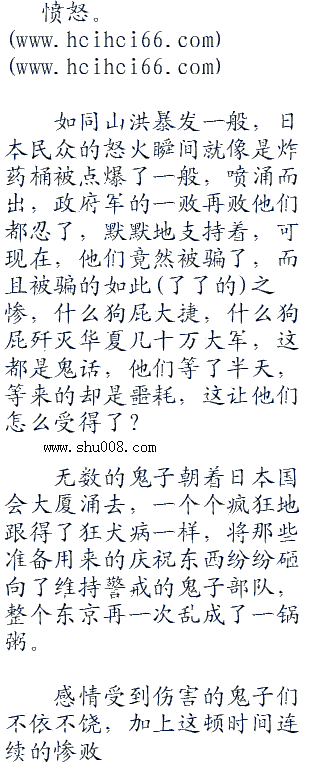 愤怒。
(www.hcihci66.com)
(www.hcihci66.com)
如同山洪暴发一般，日
本民众的怒火瞬间就像是炸
药桶被点爆了一般，喷涌而
出，政府军的一败再败他们
都忍了，默默地支持着，可
现在，他们竟然被骗了，而
且被骗的如此(了了的)之
惨，什么狗屁大捷，什么狗
屁歼灭华夏几十万大军，这
都是鬼话，他们等了半天，
等来的却是噩耗，这让他们
怎么受得了？
www.shu008.com
无数的鬼子朝着日本国
会大厦涌去，一个个疯狂地
跟得了狂犬病一样，将那些
准备用来的庆祝东西纷纷砸
向了维持警戒的鬼子部队，
整个东京再一次乱成了一锅
粥。
感情受到伤害的鬼子们
不依不饶，加上这顿时间连
续的惨败